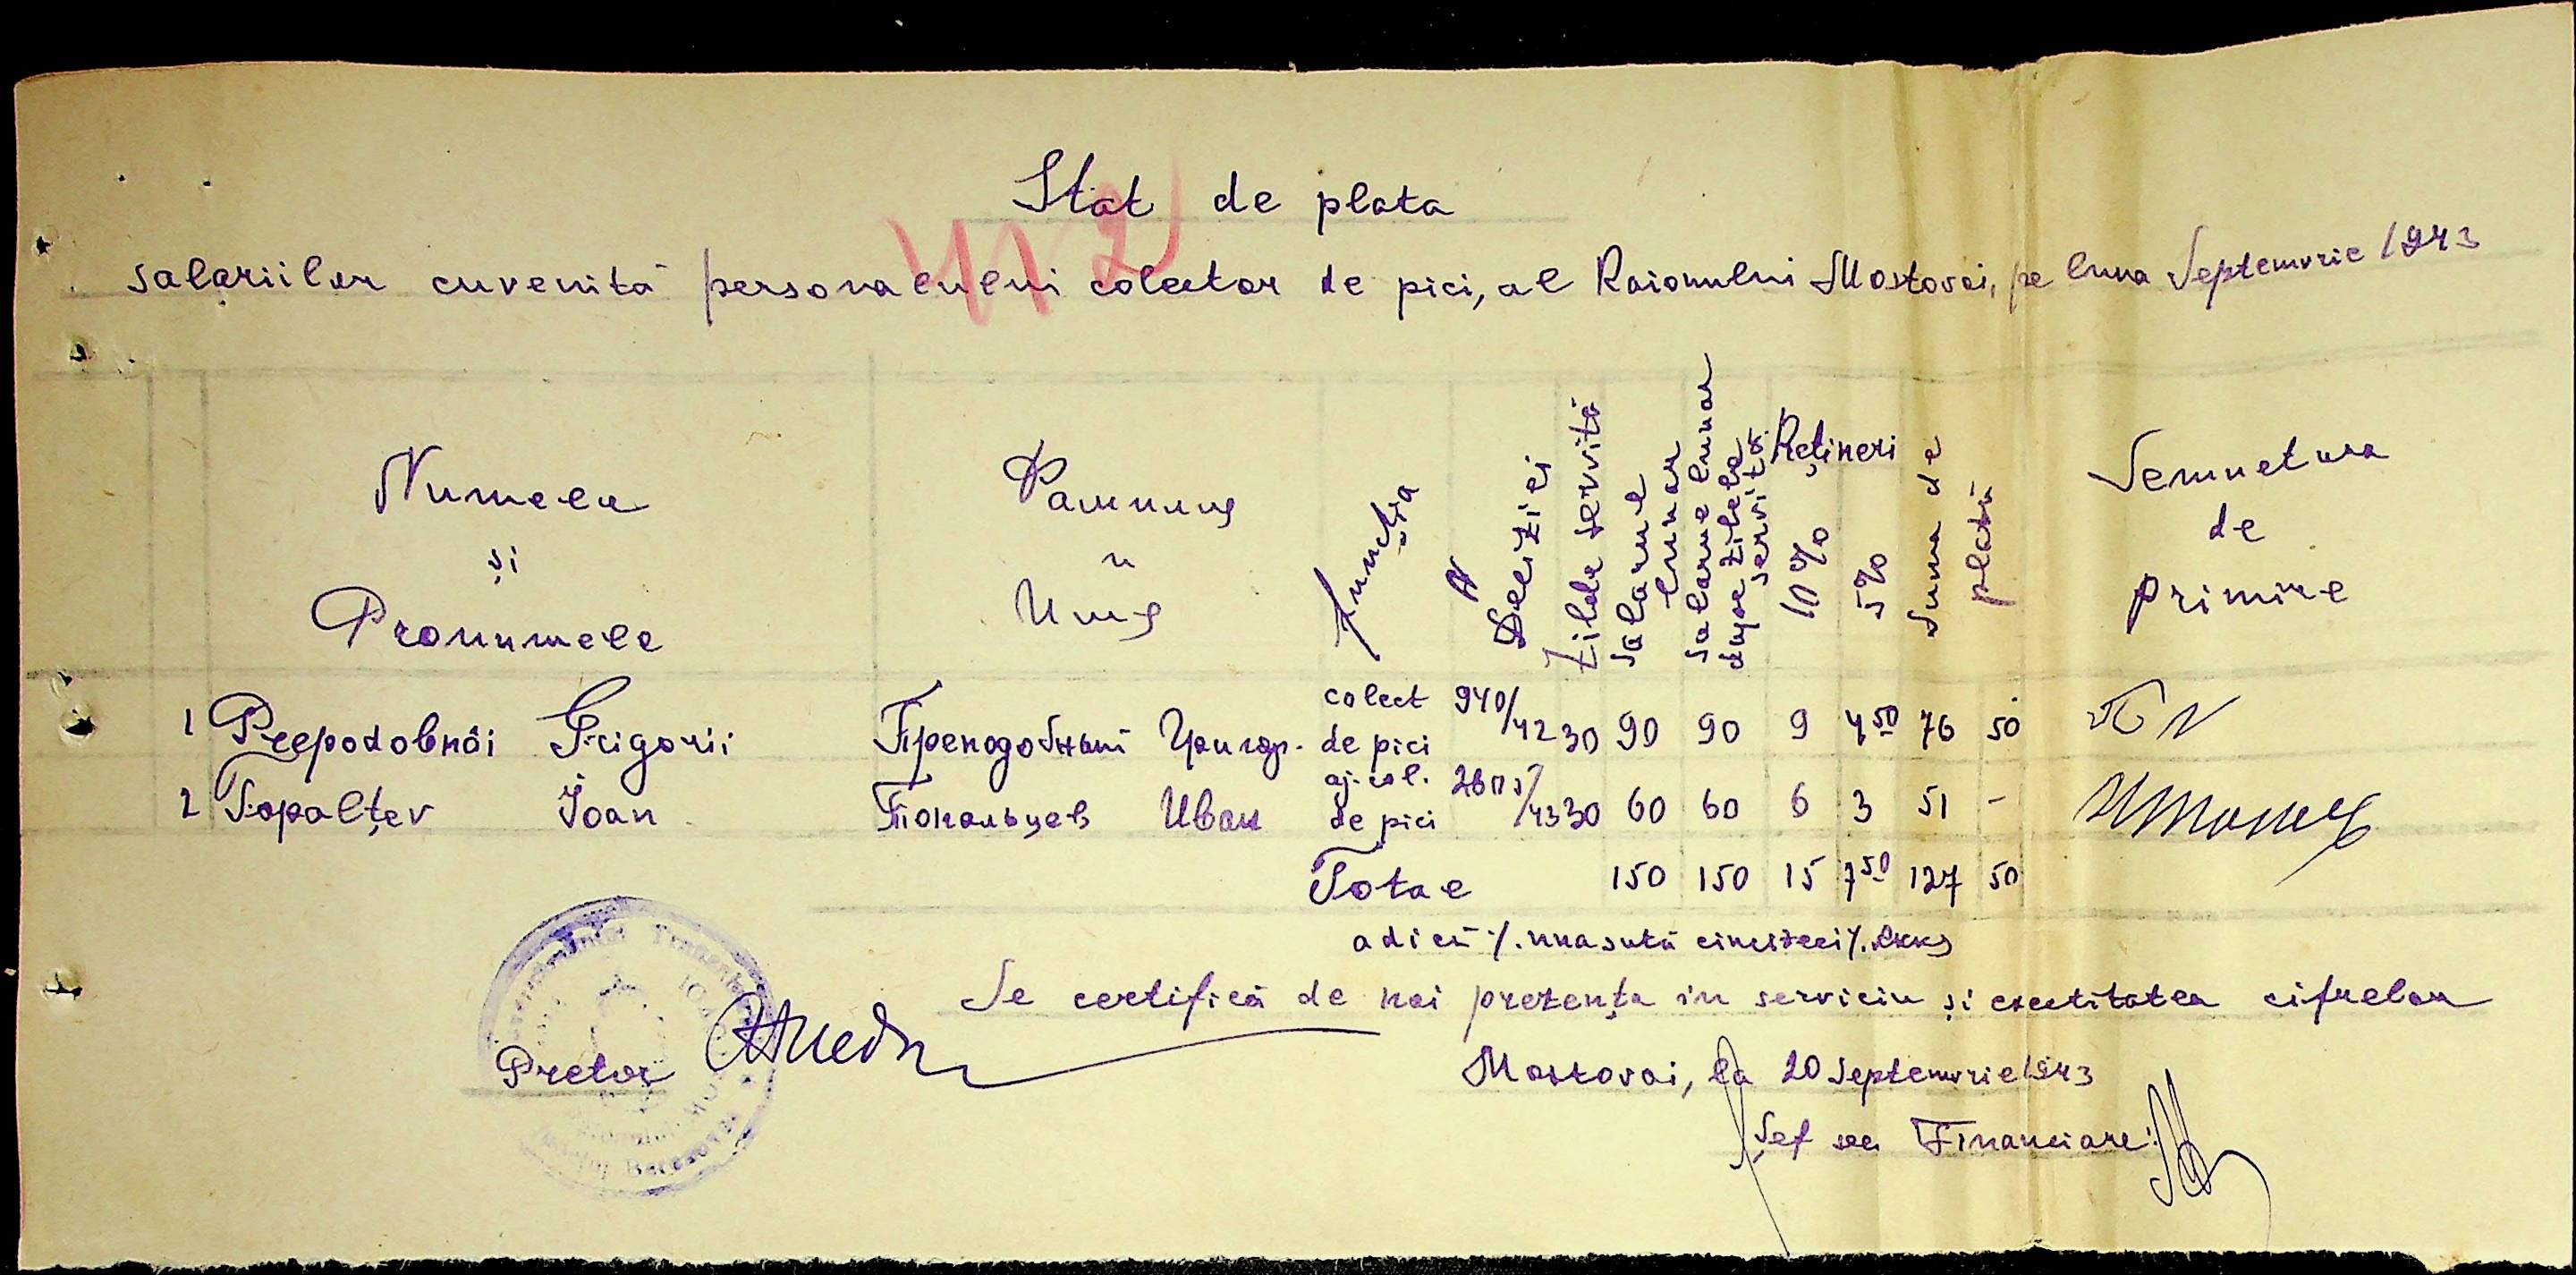 Stat de plata
112
salariilor cuvenită personalului colector de pici, al Raionului Mostovoi, pe luna Septemvrie 1943
Numele și Pronumele
Фамилия и Имя
Funcția
N Deciziei
Zilele servite
Salariul lunar
Salariul lunar dupe zilele servite
Rețineri
10%
5%
Suma de plată
Semnetura de primire
1 Prepodobnâi Grigorii Преподобный Григор. colect de pici 940/42 30 90 90 9 4 50 76 50
2 Topalțev Ioan Топальцев Иван aj. col. de pici /43 30 60 60 6 3 51 -
Total 150 150 15 7 50 127 50
adică ./. una sută cincizeci ./.
Se certifică de noi prezența in serviciu și exectitatea cifrelor
Pretor
Mostovoi, la 20 Septemvrie 1943
Șef sec Financiare